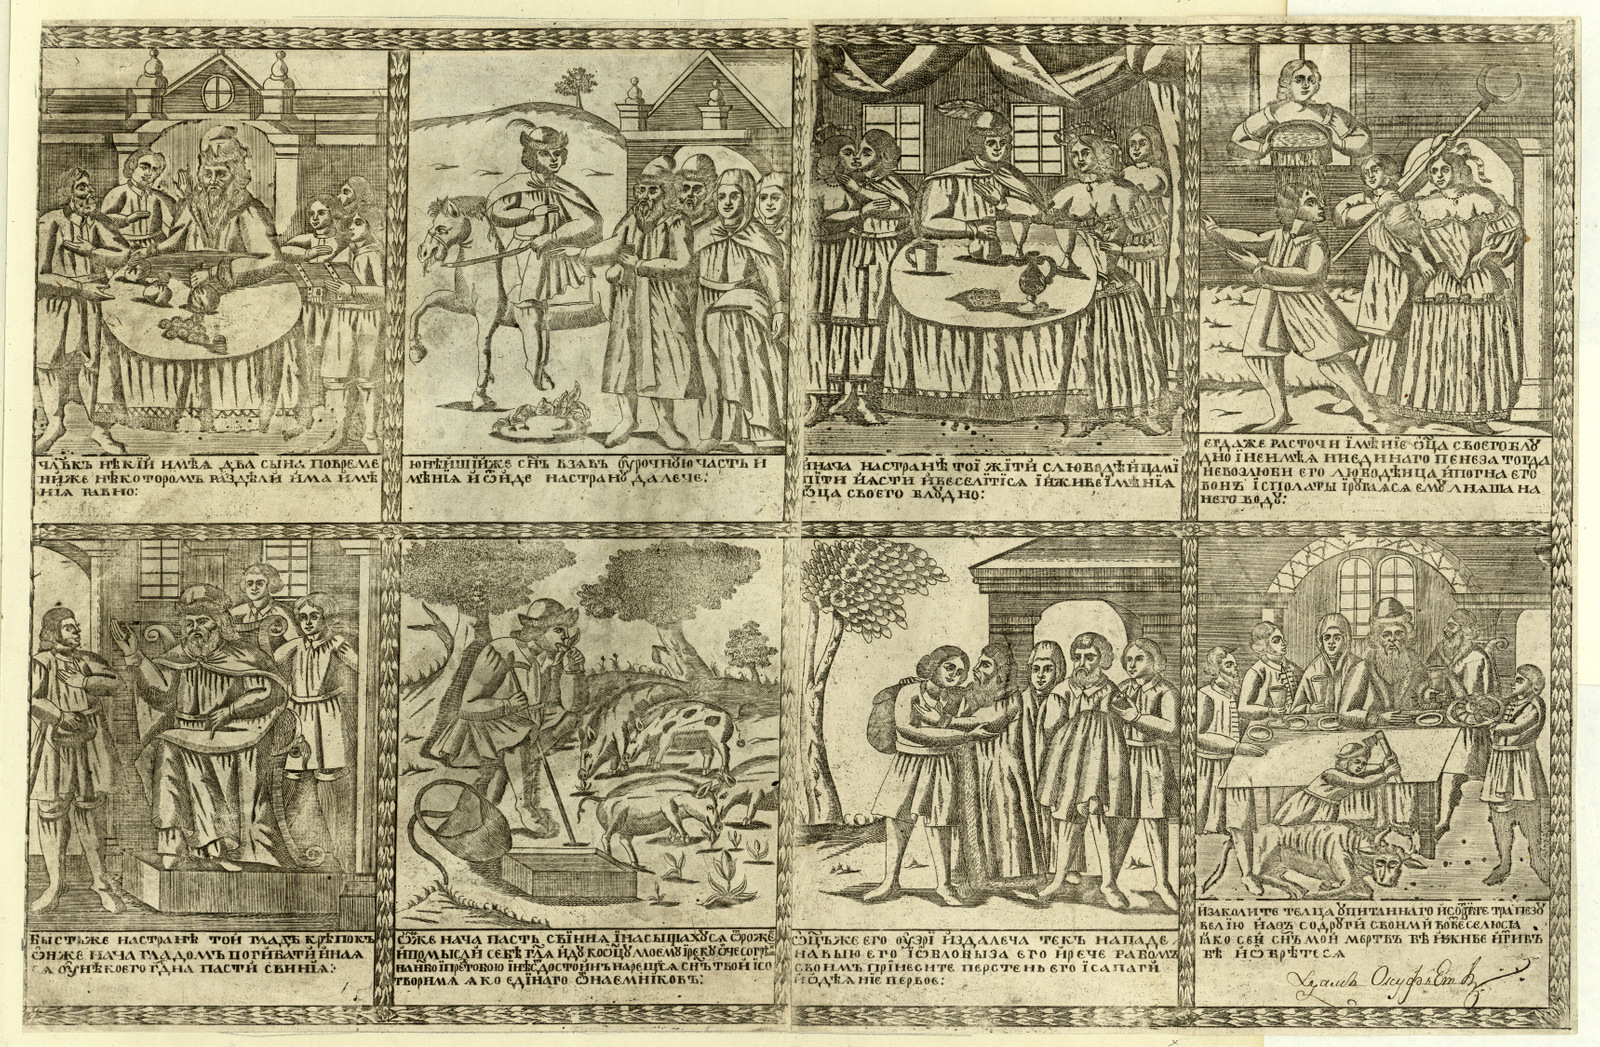 члвкъ нѣкїй имѣя два сына повреме
ниже нѣкоторомъ раздѣли има имѣ
нїя равно:
юнѣйшїйже снъ взявъ оурочную часть и
мѣнїя ѿиде настрану далече:
инача настранѣ тоі жїти слюбодѣйцамі
піти ясти ивеселітіся їиживе їмѣнїя
оца своего блудно:
егдаже расточи їмѣніе ѿца своегоблу
дно їнеимѣя ниединаго пенеза тогда
невозлюби его любодѣица ипогна его
вонъ їсполаты їругаяся ему лияша на
него воду:
бысть же настранѣ той гладъ крѣпокъ
ѿнже нача гладомъ погибати иная
ся оунѣкоего гдна пасти свинїя:
ѿже нача пасть свїния їнасыщахуся ѿроже
ипомысли себѣ гля иду коѡцу моему їреку оче согрѣ
нанбо їпретобою їнѣсдостоинъ нарещися снъ твои їсо
творимя яко единаго ѿнаемниковъ:
оцъже его оузрі издалеча текъ нападе
навыю его їоблобыза его ирече рабомъ
своимъ прїнесите перстень его їсапаги
иодѣянїе первое:
изаколите телца упитаннаго трапезу
велїю иазъ содруги своими вовеселюся
яко сей снъ мой мертвъ бѣ иживе їгибъ
бѣ иѡбрѣтеся